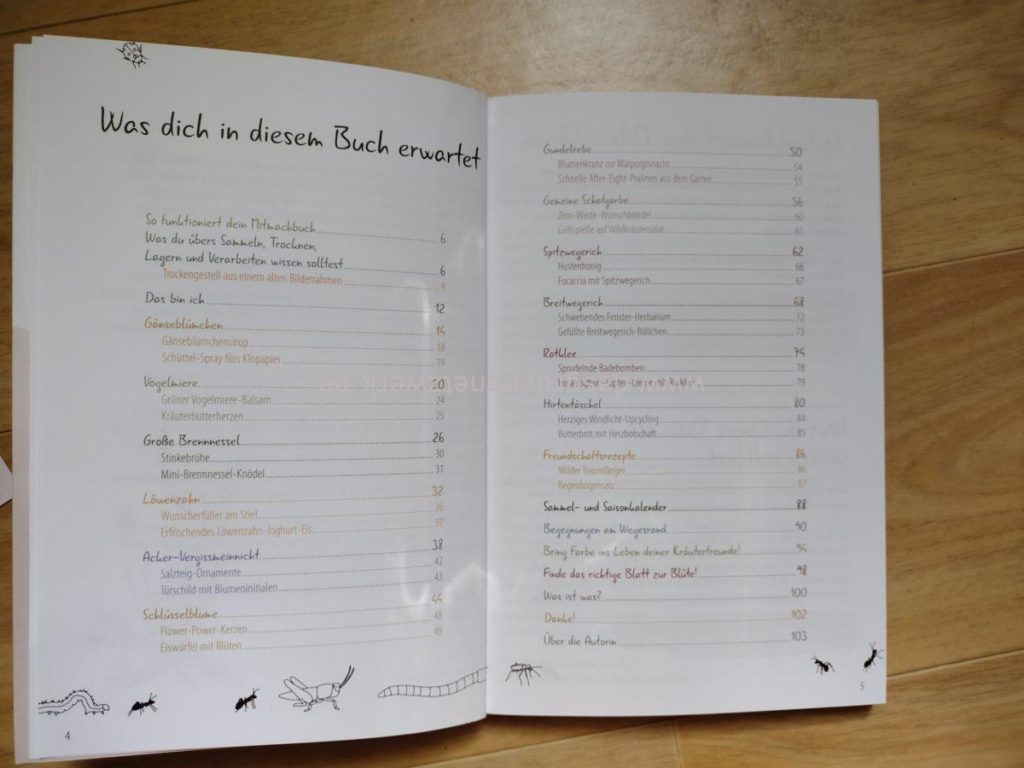 Was dich in diesem Buch erwartet
So funktioniert dein Mitmachbuch 6
Was du übers Sammeln, Trocknen,
Lagern und Verarbeiten wissen solltest 6
Trockengestell aus einem alten Bilderrahmen 9
Das bin ich 12
Gänseblümchen 14
Gänseblümchensirup 18
Schüttel-Spray fürs Klopapier 19
Vogelmiere 20
Grüner Vogelmiere-Balsam 24
Kräuterbutterherzen 25
Große Brennnessel 26
Stinkebrühe 30
Mini-Brennnessel-Knödel 31
Löwenzahn 32
Wunscherfüller am Stiel 36
Erfrischendes Löwenzahn-Joghurt-Eis 37
Acker-Vergissmeinnicht 38
Salzteig-Ornamente 42
Türschild mit Blumeninitialen 43
Schlüsselblume 44
Flower-Power-Kerzen 48
Eiswürfel mit Blüten 49
4
Gundelrebe 50
Blumenkranz zur Walpurgisnacht 54
Schnelle After-Eight-Pralinen aus dem Garten 55
Gemeine Schafgarbe 56
Zero-Waste-Wunschbündel 60
Grillspieße auf Wildkräutersalat 61
Spitzwegerich 62
Hustenhonig 66
Focaccia mit Spitzwegerich 67
Breitwegerich 68
Schwebendes Fenster-Herbarium 72
Gefüllte Breitwegerich-Röllchen 73
Rotklee 74
Sprudelnde Badebomben 78
79
Hirtentäschel 80
Herziges Windlicht-Upcycling 84
Butterbrot mit Herzbotschaft 85
Freundschaftsrezepte 86
Wilder Traumfänger 86
Regenbogensalz 87
Sammel- und Saisonkalender 88
Begegnungen am Wegesrand 90
Bring Farbe ins Leben deiner Kräuterfreunde! 94
Finde das richtige Blatt zur Blüte! 98
Was ist was? 100
Danke! 102
Über die Autorin 103
5